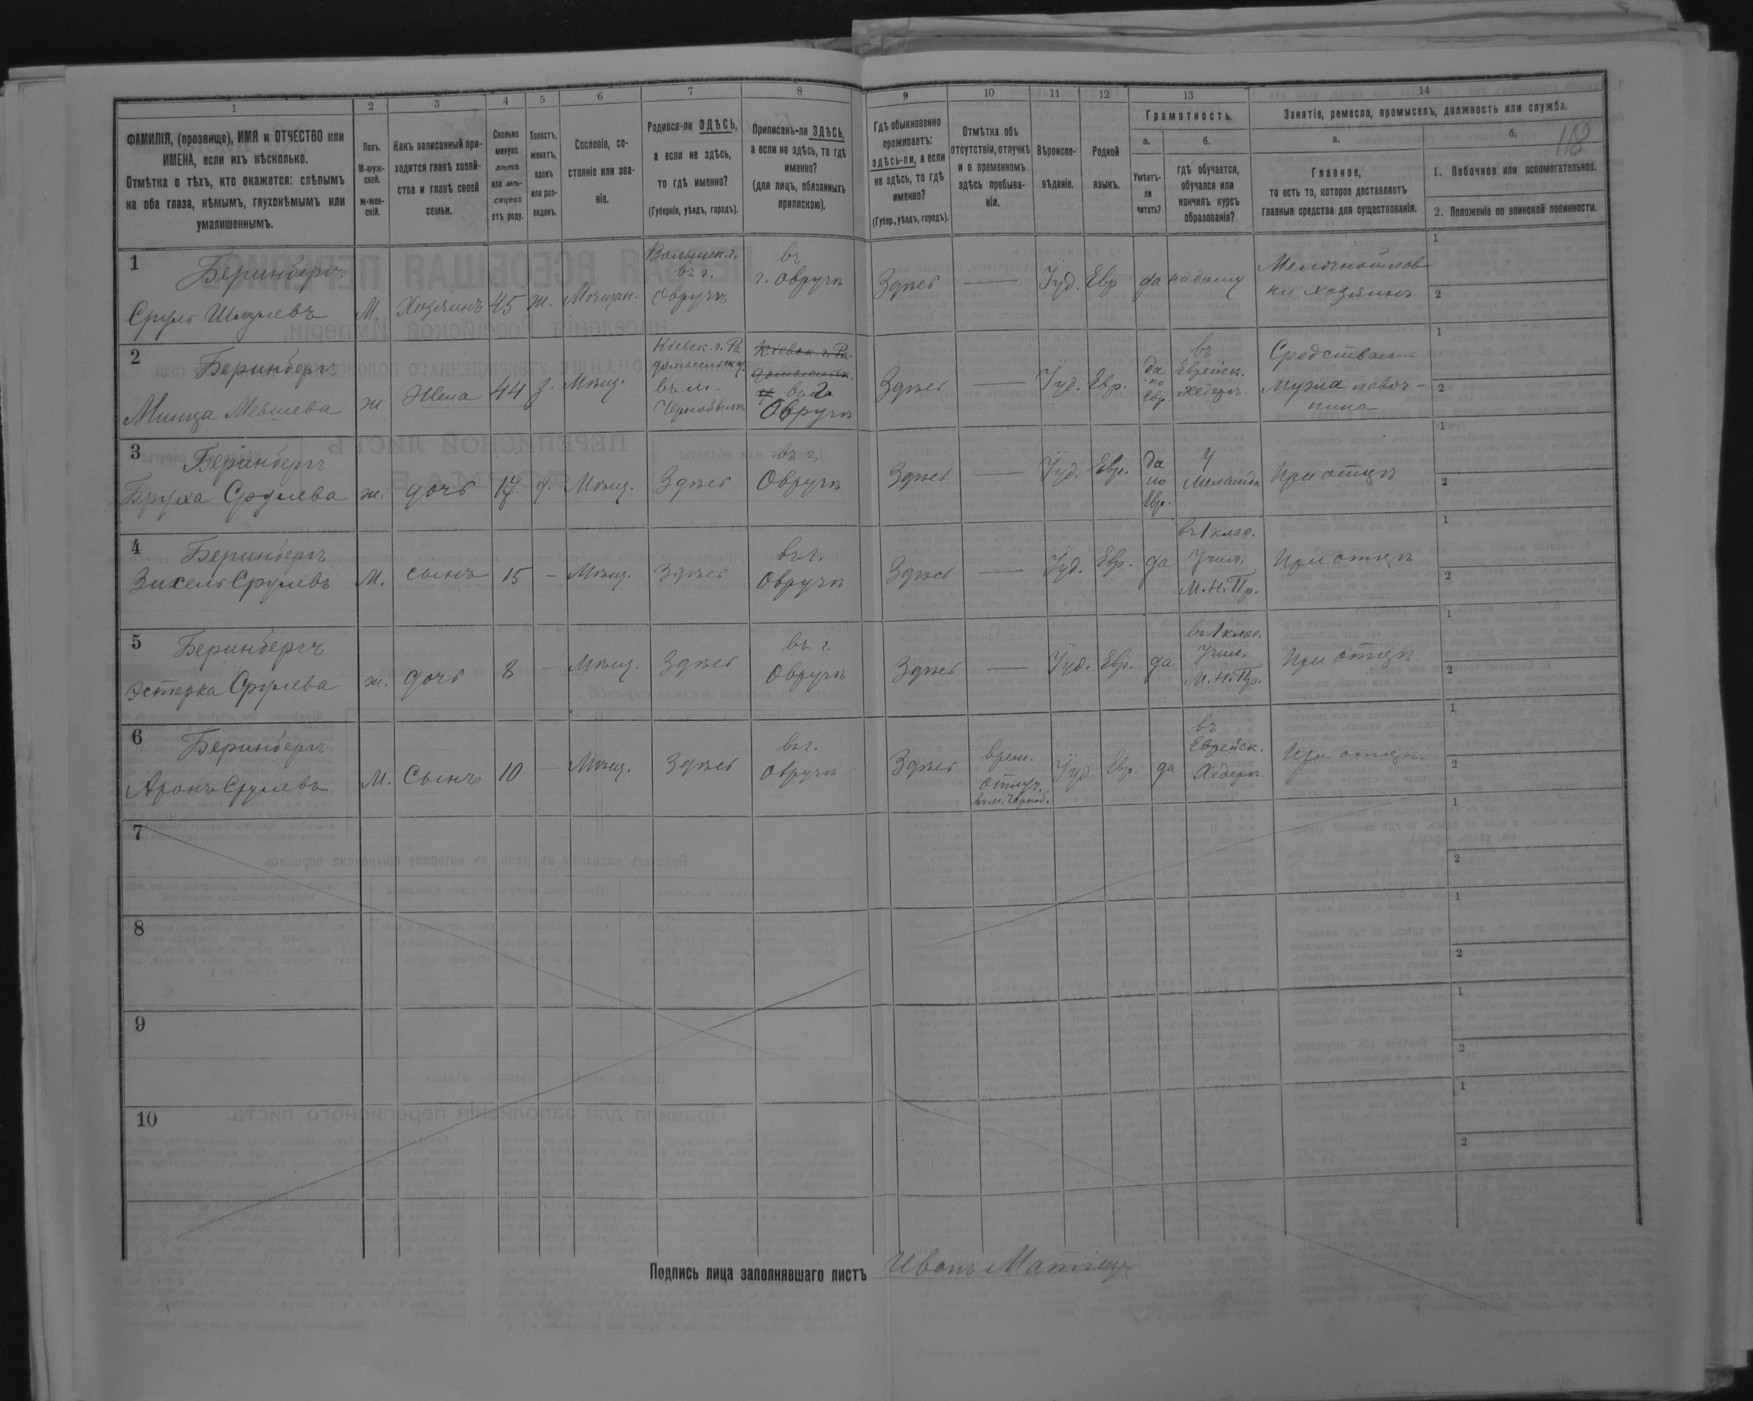 1 2 3 4 5 6 7 8 9 10 11 12 13 14
ФАМИЛІЯ, (прозвище), ИМЯ и ОТЧЕСТВО или
ИМЕНА, если ихъ нѣсколько.
Отмѣтка о тѣхъ, кто окажется: слѣпымъ
на оба глаза, нѣмымъ, глухонѣмымъ или
умалишеннымъ.
Полъ.
М-муж-
ской.
ж-жен-
скій.
Какъ записанный при-
ходится главѣ хозяй-
ства и главѣ своей
семьи.
Сколько
минуло
лѣтъ
или мѣ-
сяцевъ
отъ роду.
Холостъ,
женатъ,
вдовъ
или раз-
веденъ.
Сословіе, со-
стояніе или зва-
ніе.
Родился-ли ЗДѢСЬ,
а если не здѣсь,
то гдѣ именно?
(Губернія, уѣздъ, городъ).
Приписанъ-ли ЗДѢСЬ,
а если не здѣсь, то гдѣ
именно?
(для лицъ, обязанныхъ
припискою).
Гдѣ обыкновенно
проживаетъ:
здѣсь-ли, а если
не здѣсь, то гдѣ
именно?
(Губер., уѣздъ, городъ).
Отмѣтка объ
отсутствіи, отлучкѣ
и о временномъ
здѣсь пребыва-
ніи.
Вѣроиспо-
вѣданіе.
Родной
языкъ.
Грамотность.
а.
Умѣетъ-
ли
читать?
б.
гдѣ обучается,
обучался или
кончилъ курсъ
образованія?
Занятіе, ремесло, промыселъ, должность или служба.
а.
Главное,
то есть то, которое доставляетъ
главныя средства для существованія.
б.
118
1. Побочное или вспомогательное.
2. Положеніе по воинской повинности.
1
Беринбергъ
Сруль Шмулевъ
М.
Хозяинъ
45
ж.
Мѣщан.
Волынск. г.
въ г.
Овручѣ
въ
г. Овручѣ
Здѣсь
Іуд.
Евр
да
на дому
Мелочной лав
ки хозяинъ
1
2
2
Беринбергъ
Минца Мевшева
ж
Жена
44
з.
Мѣщ.
Кіевск. г. Ра
домысльск. у.
въ м.
Чернобылѣ
Кіевск. г. Ра-
домысльск.
у. въ г.
Овручѣ
Здѣсь
Іуд.
Евр.
да
по
Евр.
въ
Еврейск.
Хедерѣ
Средствами
мужа лавоч-
ника
1
2
3
Беринбергъ
Бруха Срулева
ж.
дочь
17.
д.
Мѣщ.
Здѣсь
въ г.
Овручѣ
Здѣсь
Іуд.
Евр.
да
по
Евр.
У
Меламда
При отцѣ
1
2
4
Беринбергъ
Зихель Срулевъ
М.
сынъ
15
Мѣщ.
Здѣсь
въ г.
Овручѣ
Здѣсь
Іуд.
Евр.
да
въ 1 клас.
Учил.
М. Н. Пр.
При отцѣ
1
2
5
Беринбергъ
Эстерка Срулева
ж.
дочь
8
Мѣщ.
Здѣсь
въ г.
Овручѣ
Здѣсь
Іуд.
Евр.
да
въ 1 клас.
Учил.
М. Н. Пр.
При отцѣ
1
2
6
Беринбергъ
Аронъ Срулевъ
М.
Сынъ
10
Мѣщ.
Здѣсь
въ г.
Овручѣ
Здѣсь
врем.
отлуч.
въ м. Черноб.
Іуд.
Евр.
да
въ
Еврейск.
Хедерѣ
При отцѣ
1
2
7
1
2
8
1
2
9
1
2
10
1
2
Подпись лица заполнявшаго листъ Иванъ